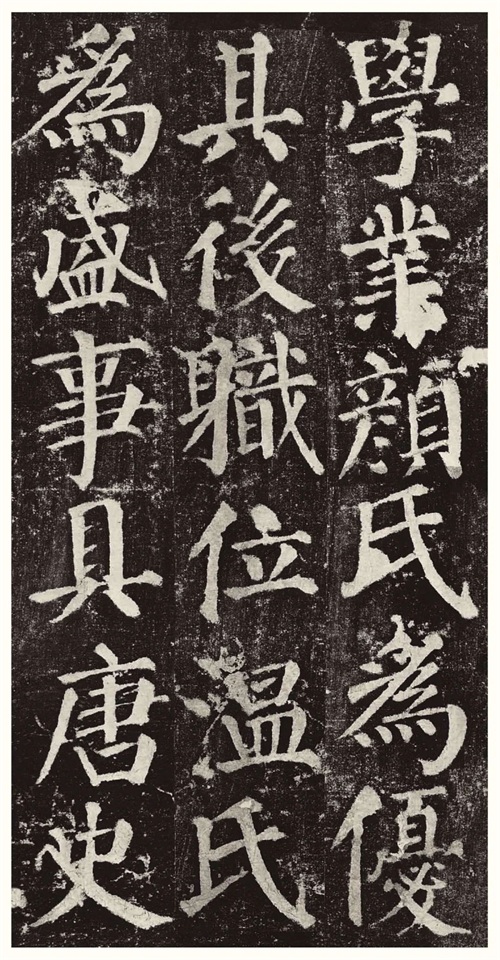 學業顏氏為優
其後職位溫氏
為盛事具唐史